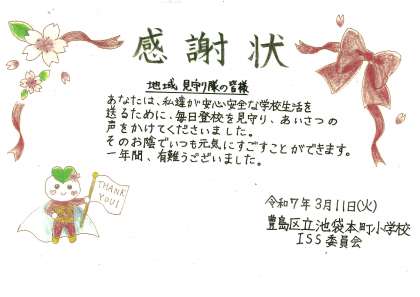 感謝状
地域 見守り隊の皆様
あなたは、私達が安心安全な学校生活を
送るために、毎日登校を見守り、あいさつの
声をかけてくださいました。
そのお陰でいつも元気にすごすことができます。
一年間、有難うございました。
THANK
YOU!
令和7年3月11日(火)
豊島区立池袋本町小学校
ISS委員会